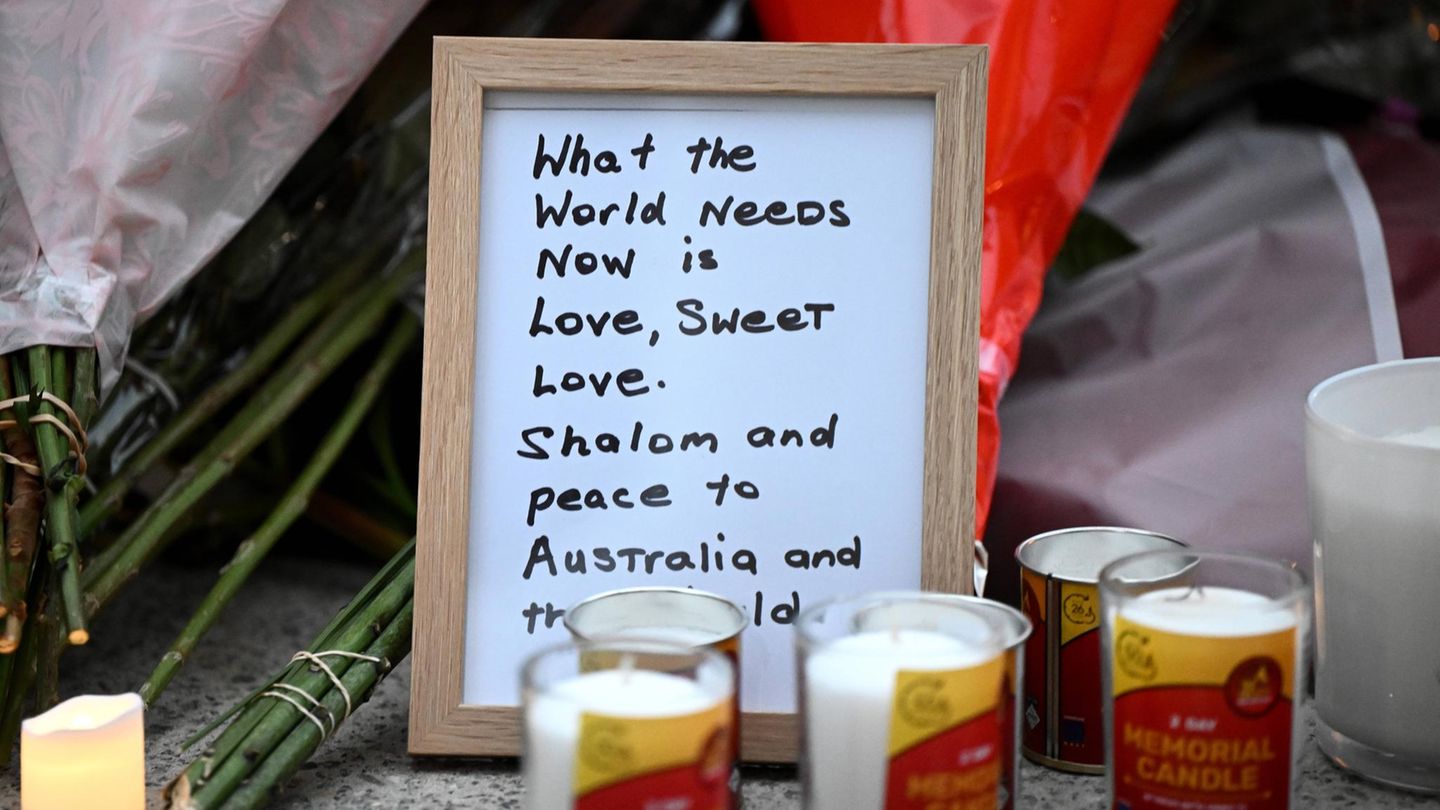 What the
World Needs
Now is
Love, Sweet
Love.
Shalom and
peace to
Australia and
26
DAY
MEMORIAL
CANDLE
DAY
MEMORIAL